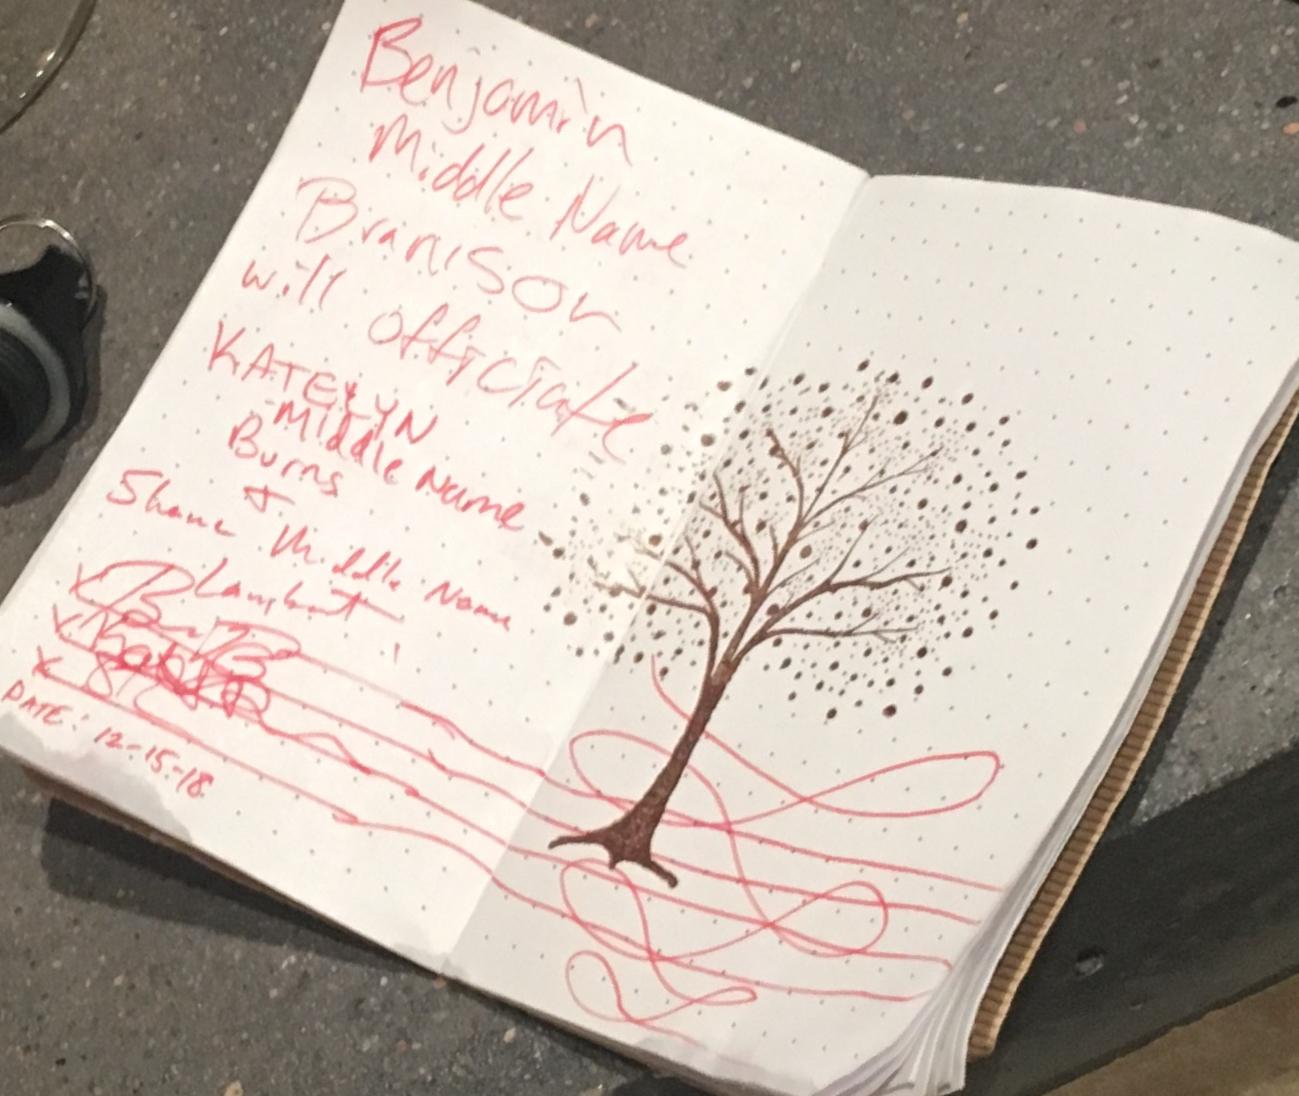 Benjamin
Middle Name
Branison
will officiate
KATELYN
Middle Name
Burns
+
Shane Middle Name
Lambert
X
X
X
DATE: 12-15-18